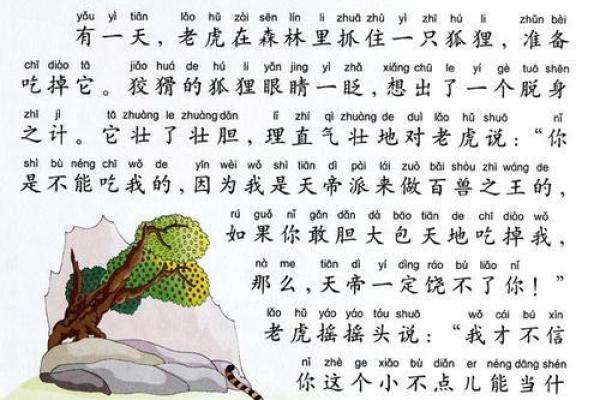 yǒu yì tiān lǎo hǔ zài sēn lín li zhuā zhù yì zhī hú li zhǔn bèi
有一天，老虎在森林里抓住一只狐狸，准备
chī diào tā jiǎo huá de hú li yǎn jing yì zhǎ xiǎng chū le yí gè tuō shēn
吃掉它。狡猾的狐狸眼睛一眨，想出了一个脱身
zhī jì tā zhuàng le zhuàng dǎn lǐ zhí qì zhuàng de duì lǎo hǔ shuō nǐ
之计。它壮了壮胆，理直气壮地对老虎说：“你
shì bù néng chī wǒ de yīn wèi wǒ shì tiān dì pài lái zuò bǎi shòu zhī wáng de
是不能吃我的，因为我是天帝派来做百兽之王的，
rú guǒ nǐ gǎn dǎn dà bāo tiān de chī diào wǒ
如果你敢胆大包天地吃掉我，
nà me tiān dì yí dìng ráo bù liǎo nǐ
那么，天帝一定饶不了你！”
lǎo hǔ yáo yáo tóu shuō wǒ cái bú xìn
老虎摇摇头说：“我才不信
nǐ zhè ge xiǎo bù diǎn er néng dāng shén
你这个小不点儿能当什